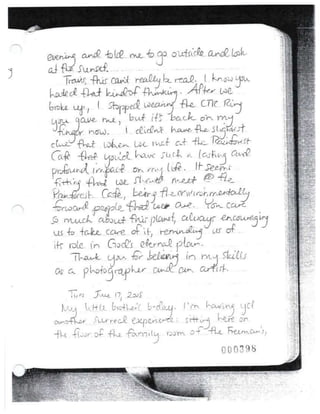 evening and told me to go outside and look
at the sunset.
Travis, this can't really be real. I know you
hated that kind of thinking. After we
broke up, I stopped wearing the CTR Ring
you gave me, but it's back on my
finger now. I didn't have the slightest
clue that when we met at the Rainforest
Café that you'd have such a lasting and
profound impact on my life. It seems
fitting that we should meet @ the
Rainforest Café, being the environmentally
forward people that we are. You care
so much about this planet, always encouraging
us to take care of it, reminding us of
its role in God's eternal plan.
Thank you for believing in my skills
as a photographer and an artist.
Tues June 17, 2008
My little brother's b-day. I'm having yet
another surreal experience: sitting here on
the floor of the family room of the Freeman's,
000398